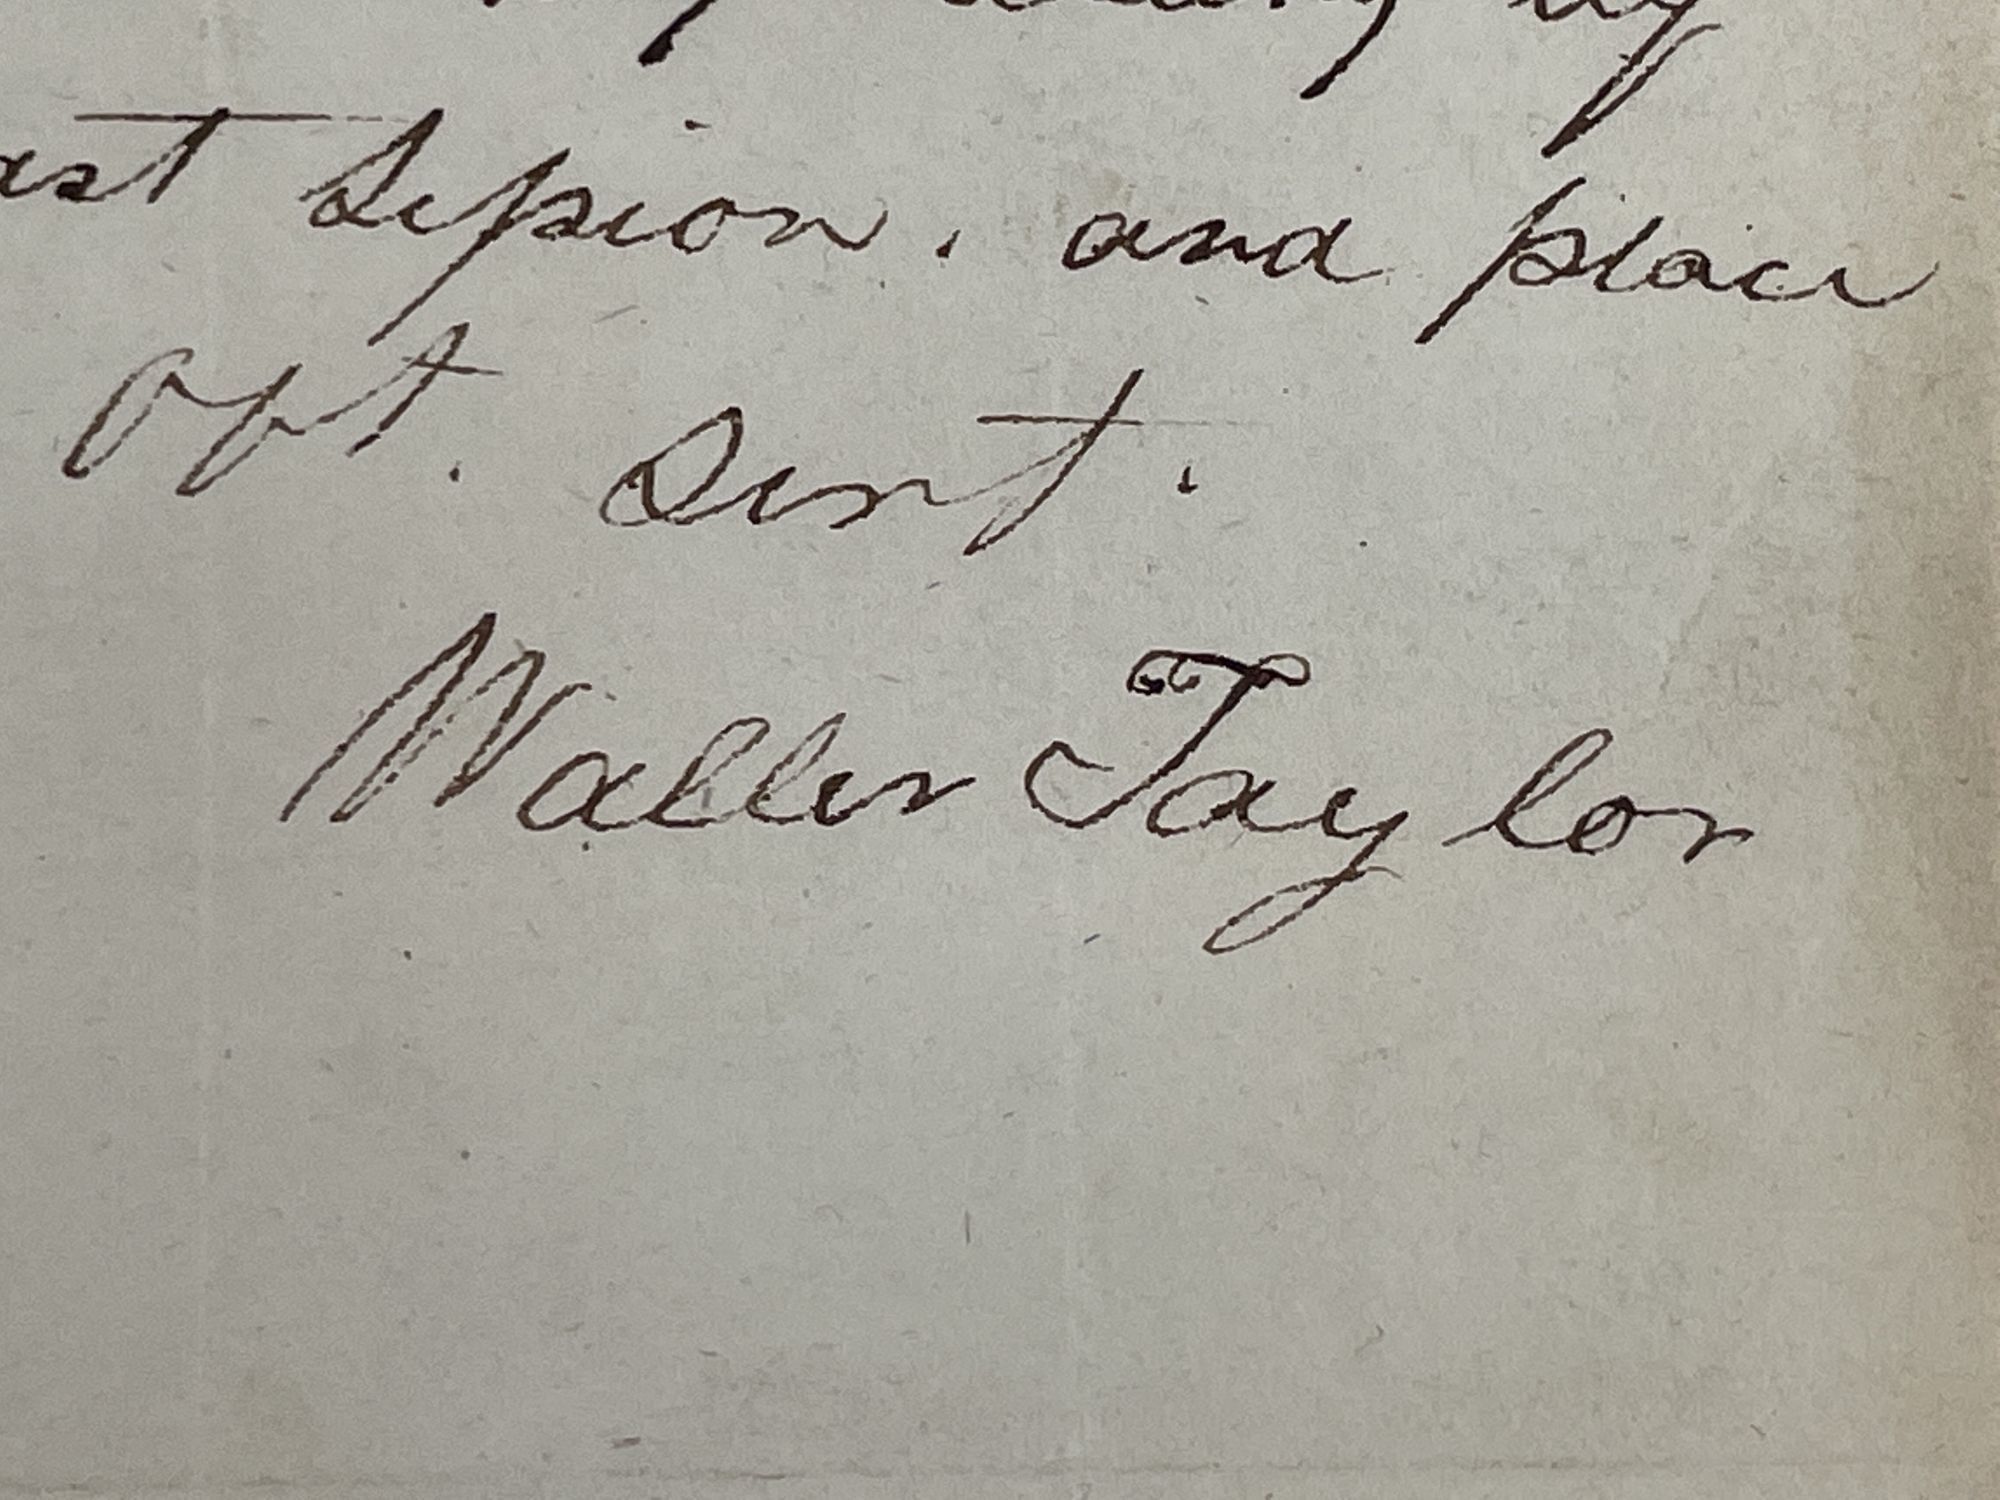 last Session. and place
Opt. Sent.
Waller Taylor